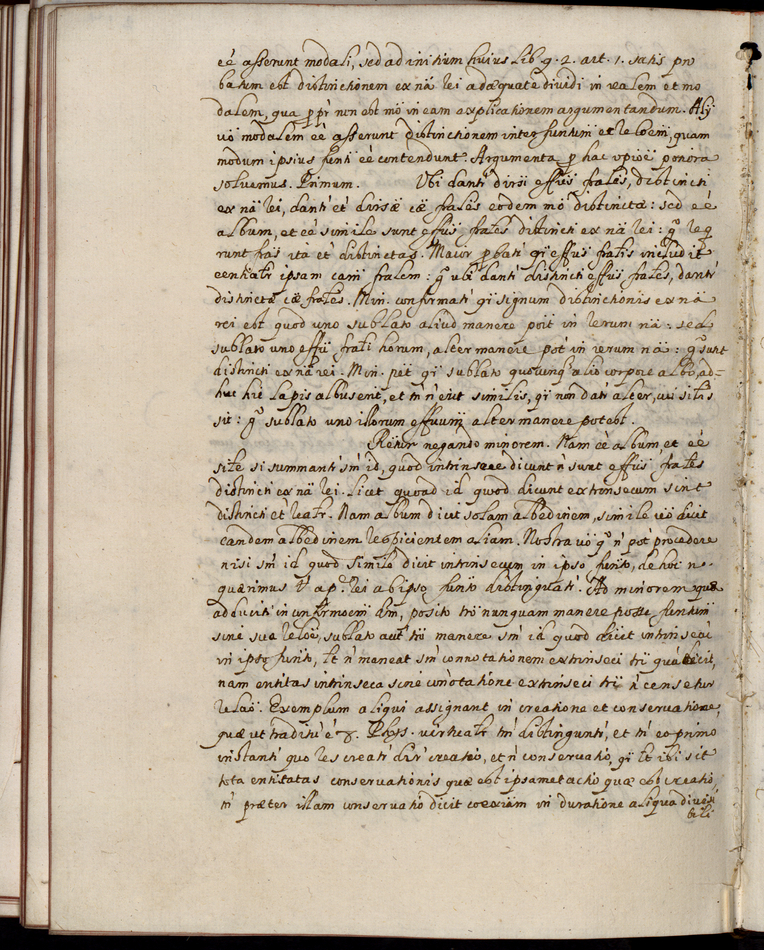 eé asserunt modali, sed ad initium huius Lib. q. 2. art. 1. satis pro
batum est distinctionem ex nã rei adæquate dividi in realem et mo
dalem, qua ppr̃ non est mõ in eam explicationem argumentandum. Alij
võ modalem eé asserunt distinctionem inter funtum et reloem, quam
modum ipsius funti eé contendunt. Argumenta p hac opioẽ ponora
solvemus. Primum. Ubi dant' diversi effûs frales, distincti
ex nã rei, dant' et' diversæ cæ frales eodem mõ distinctæ: sed eé
album, et eé simile sunt effûs frales distincti ex nã rei: gº req
runt fras ita et' distinctas. Maior pbat' qi effus fralis includit
eentialr ipsam cam fralem: gº ubi dant' distincti effûs frales, dant'
distinctæ cæ frales. Min. confirmat' qi signum distinctionis ex nã
rei est quod uno sublato aliud manere poit in rerum nã: sed
sublato uno effû frali horum, alter manere pot' in rerum nã: gº sunt
distincti ex nã rei. Min. pet qi sublato quocunq alio corpore albo, ad=
huc hic lapis albus erit, et tñ ñ erit similis, qi non dat' alter, cui similis
sit: gº sublato uno illorum effuum alter manere potest.
Rñtur negando minorem. Nam eé album et eé
sile si sumant' sm̃ id, quod intrinsece dicunt ñ sunt effûs frales
distincti ex nã rei. licet quoad id quod dicunt extrinsecum sint
distincti et' realr. Nam album dicit solam albedinem, simile võ dicit
eandem albedinem respicientem aliam. Nostra võ qº ñ pot' procedere
nisi sm̃ id quod simile dicit intrinsecum in ipso funto, de hoc n.
quærimus ut a p. rei ab ipso funto distinguat'. Ad minorem quæ
adducit' in confirmõem dm, posito trõ nunquam manere posse funtum
sine sua reloẽ, sublato aut' trõ manere sm̃ id quod dicit intrinseci
in ipso funto, lt ñ maneat sm̃ connotationem extrinseci tri quã dicit,
nam entitas intrinseca sine conotatione extrinseci tri ñ censetur
relaõ. Exemplum aliqui assignant in creatione et conservatione,
quæ ut traditũ é 8. Phys. virtualr tm̃ distingunt', et tñ eo primo
instanti quo res creat' dir' creatio, et ñ conservatio, qi lt ibi sit
tota entitatas conservationis quæ est ipsamet actio quæ est creatio
tñ præter illam conservatio dicit coexiam in duratione aliqua divisi
bili